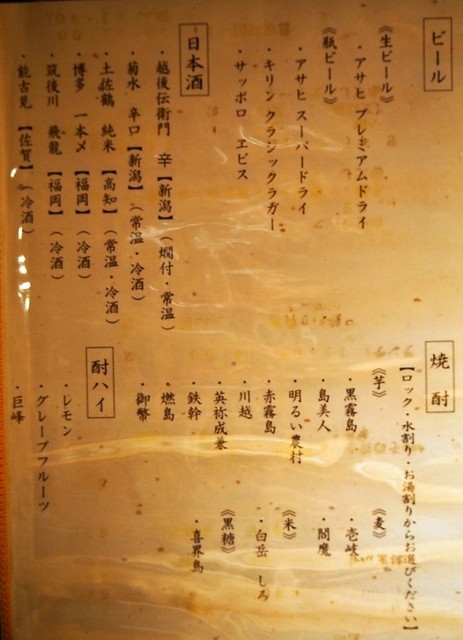 ビール
《生ビール》
・アサヒ プレミアムドライ
《瓶ビール》
・アサヒ スーパードライ
・キリン クラシックラガー
・サッポロ ヱビス
日本酒
・越後伝衛門 辛【新潟】(燗付・常温)
・菊水 辛口【新潟】(常温・冷酒)
・土佐鶴 純米【高知】(常温・冷酒)
・博多 一本〆【福岡】(冷酒)
・筑後川 飛龍【福岡】(冷酒)
・能古見【佐賀】(冷酒)
焼酎
【ロック・水割り・お湯割りからお選びください】
《芋》
・黒霧島
・島美人
・明るい農村
・赤霧島
・川越
・英祢成兼
・鉄幹
・燃島
・御幣
《麦》
・壱岐
・閻魔
《米》
・白岳 しろ
《黒糖》
・喜界島
酎ハイ
・レモン
・グレープフルーツ
・巨峰